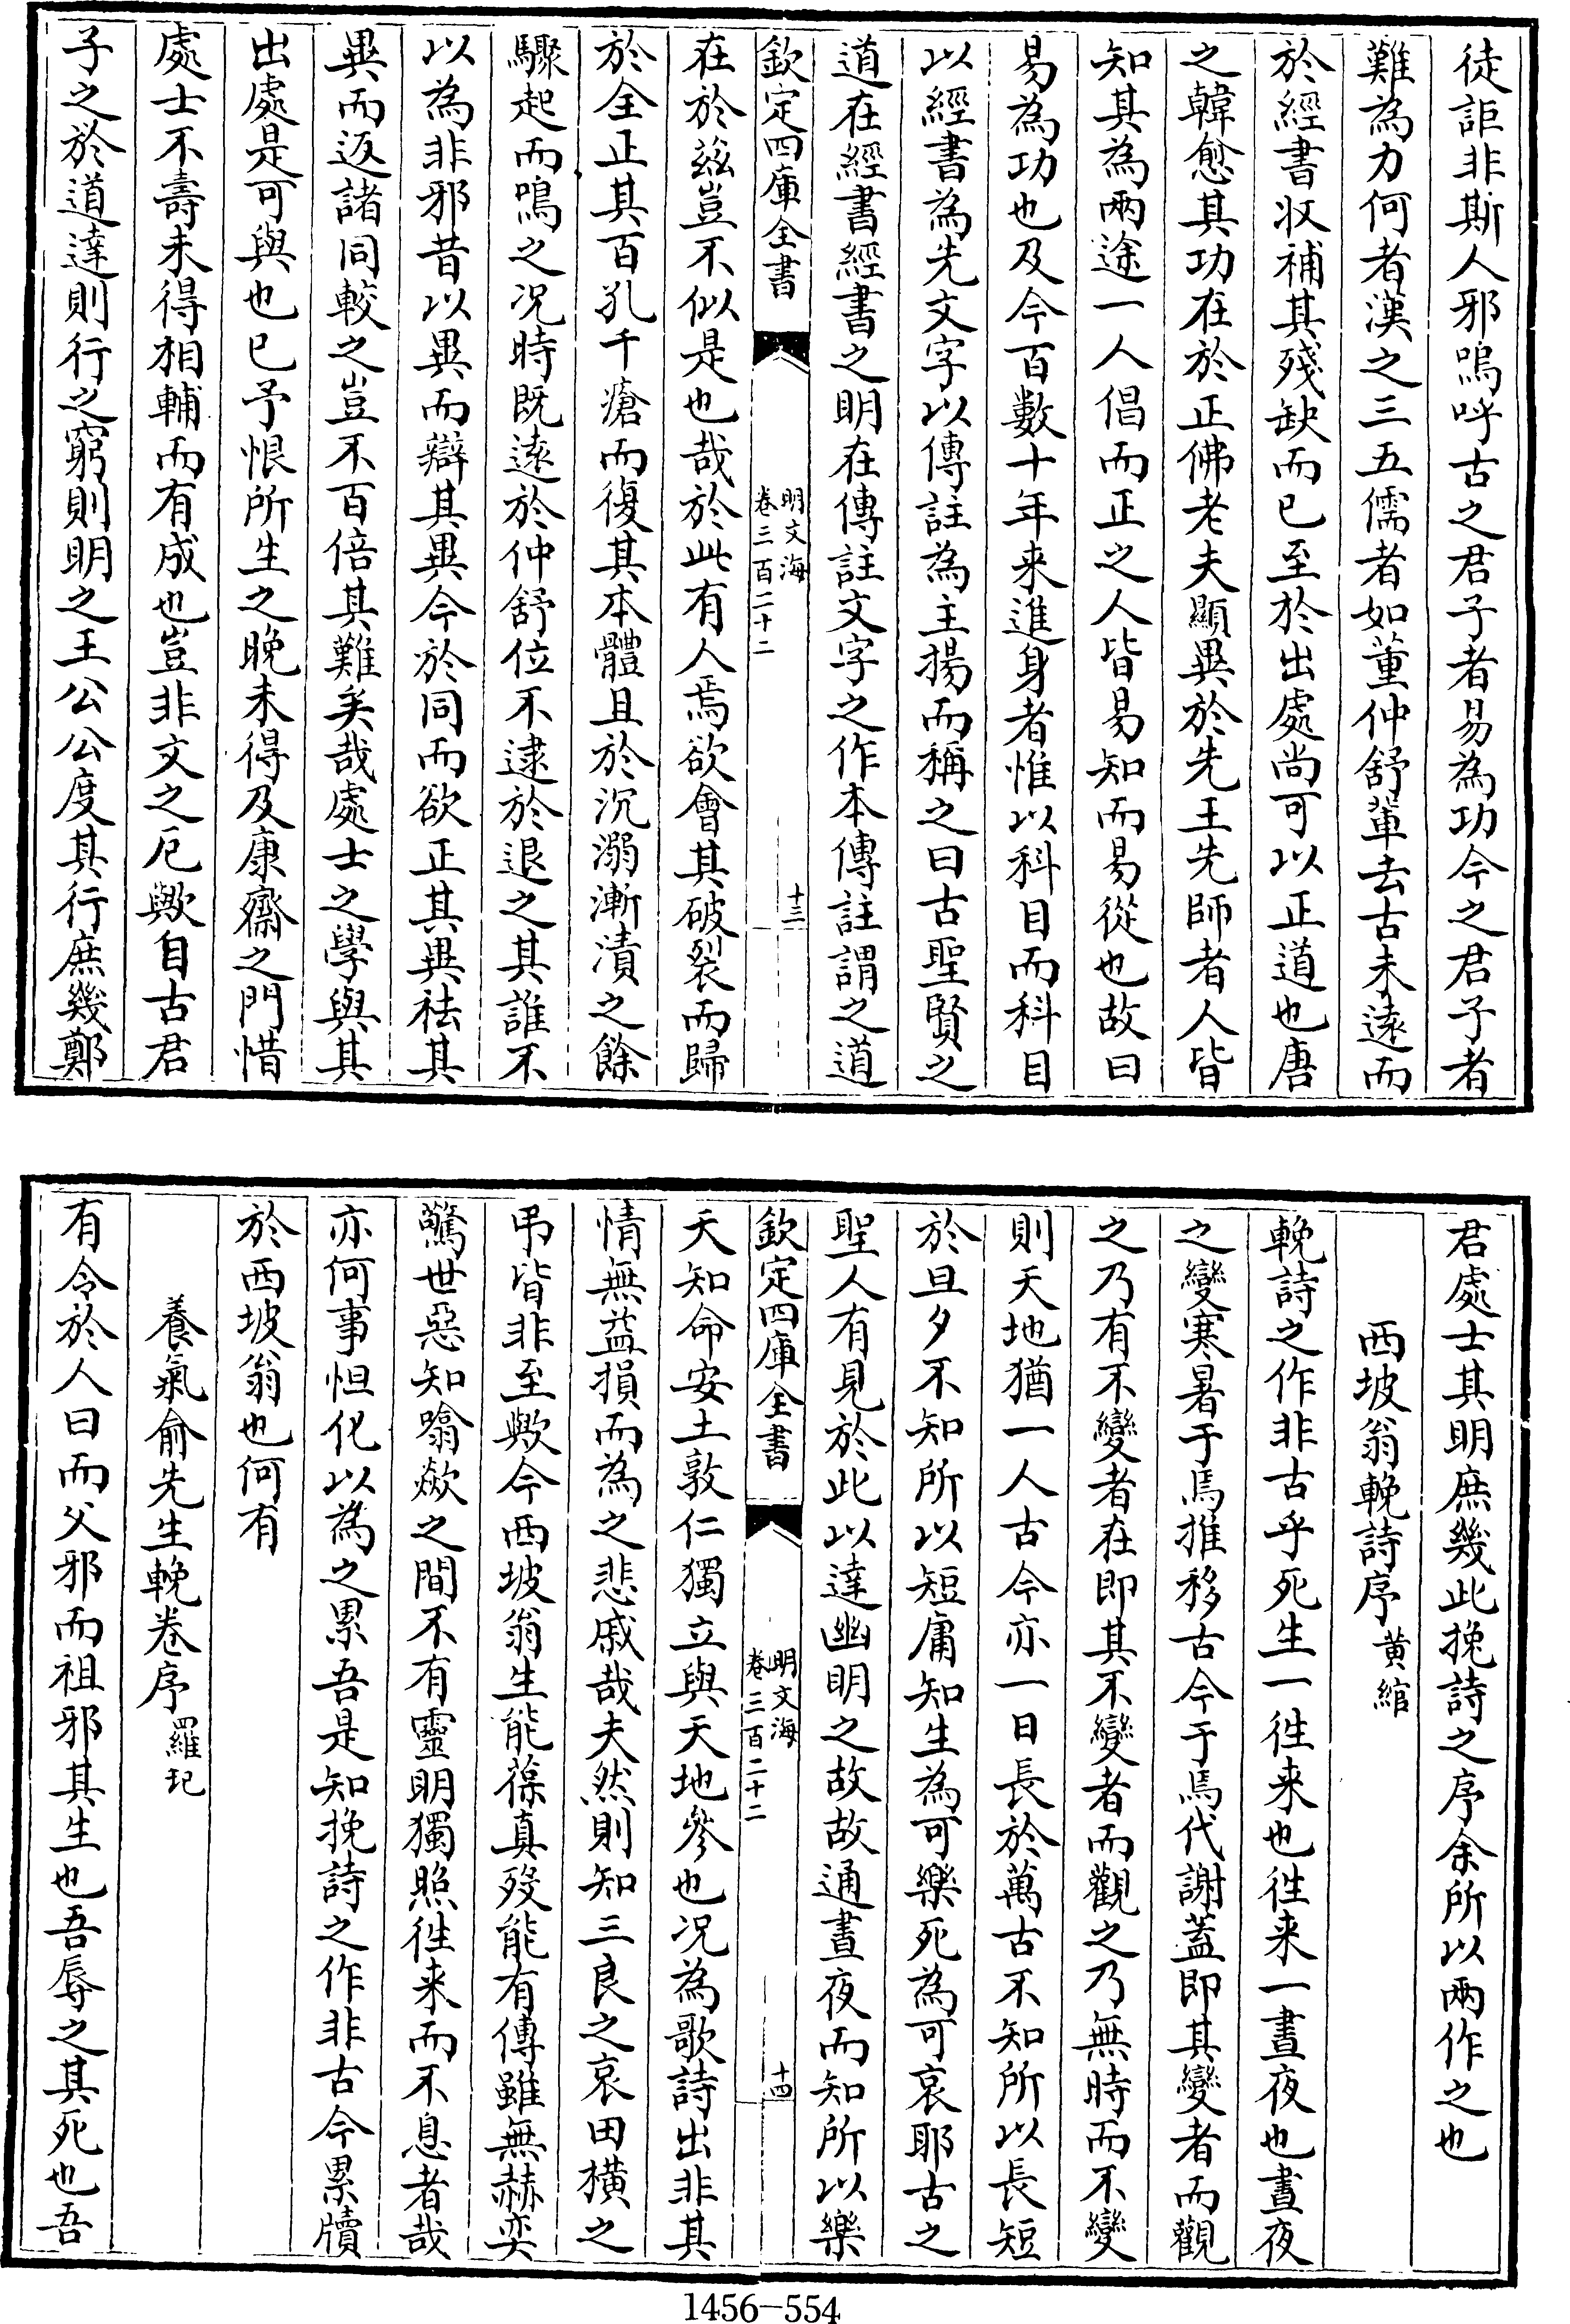 徒詎非斯人邪嗚呼古之君子者易為功今之君子者
難為力何者漢之三五儒者如董仲舒輩去古未遠而
於經書収補其殘缺而已至於出處尚可以正道也唐
之韓愈其功在於正佛老夫顯異於先王先師者人皆
知其為兩途一人倡而正之人皆易知而易從也故曰
易為功也及今百數十年来進身者惟以科目而科目
以經書為先文字以傳註為主揚而稱之曰古聖賢之
道在經書經書之明在傳註文字之作本傳註謂之道
欽定四庫全書
明文海
卷三百二十二
十三
在於兹豈不似是也哉於此有人焉欲會其破裂而歸
於全正其百孔千瘡而復其本體且於沉溺漸漬之餘
驟起而鳴之况時既逺於仲舒位不逮於退之其誰不
以為非邪昔以異而辯其異今於同而欲正其異袪其
異而返諸同較之豈不百倍其難矣哉處士之學與其
出處是可與也已予恨所生之晚未得及康齋之門惜
處士不壽未得相輔而有成也豈非文之厄歟自古君
子之於道達則行之窮則明之王公公度其行庶幾鄭
君處士其明庶幾此挽詩之序余所以兩作之也
西坡翁輓詩序 黄綰
輓詩之作非古乎死生一徃来也徃来一晝夜也晝夜
之變寒暑于焉推移古今于焉代謝蓋即其變者而觀
之乃有不變者在即其不變者而觀之乃無時而不變
則天地猶一人古今亦一日長於萬古不知所以長短
於旦夕不知所以短庸知生為可樂死為可哀耶古之
聖人有見於此以達幽明之故故通晝夜而知所以樂
欽定四庫全書
明文海
卷三百二十二
十四
天知命安土敦仁獨立與天地參也况為歌詩出非其
情無益損而為之悲戚哉夫然則知三良之哀田横之
弔皆非至歟今西坡翁生能葆真歿能有傳雖無赫奕
驚世惡知噏歘之間不有靈明獨照徃来而不息者哉
亦何事怛化以為之累吾是知挽詩之作非古今累牘
於西坡翁也何有
養氣俞先生輓卷序 羅玘
有令於人曰而父邪而祖邪其生也吾辱之其死也吾
1456-554